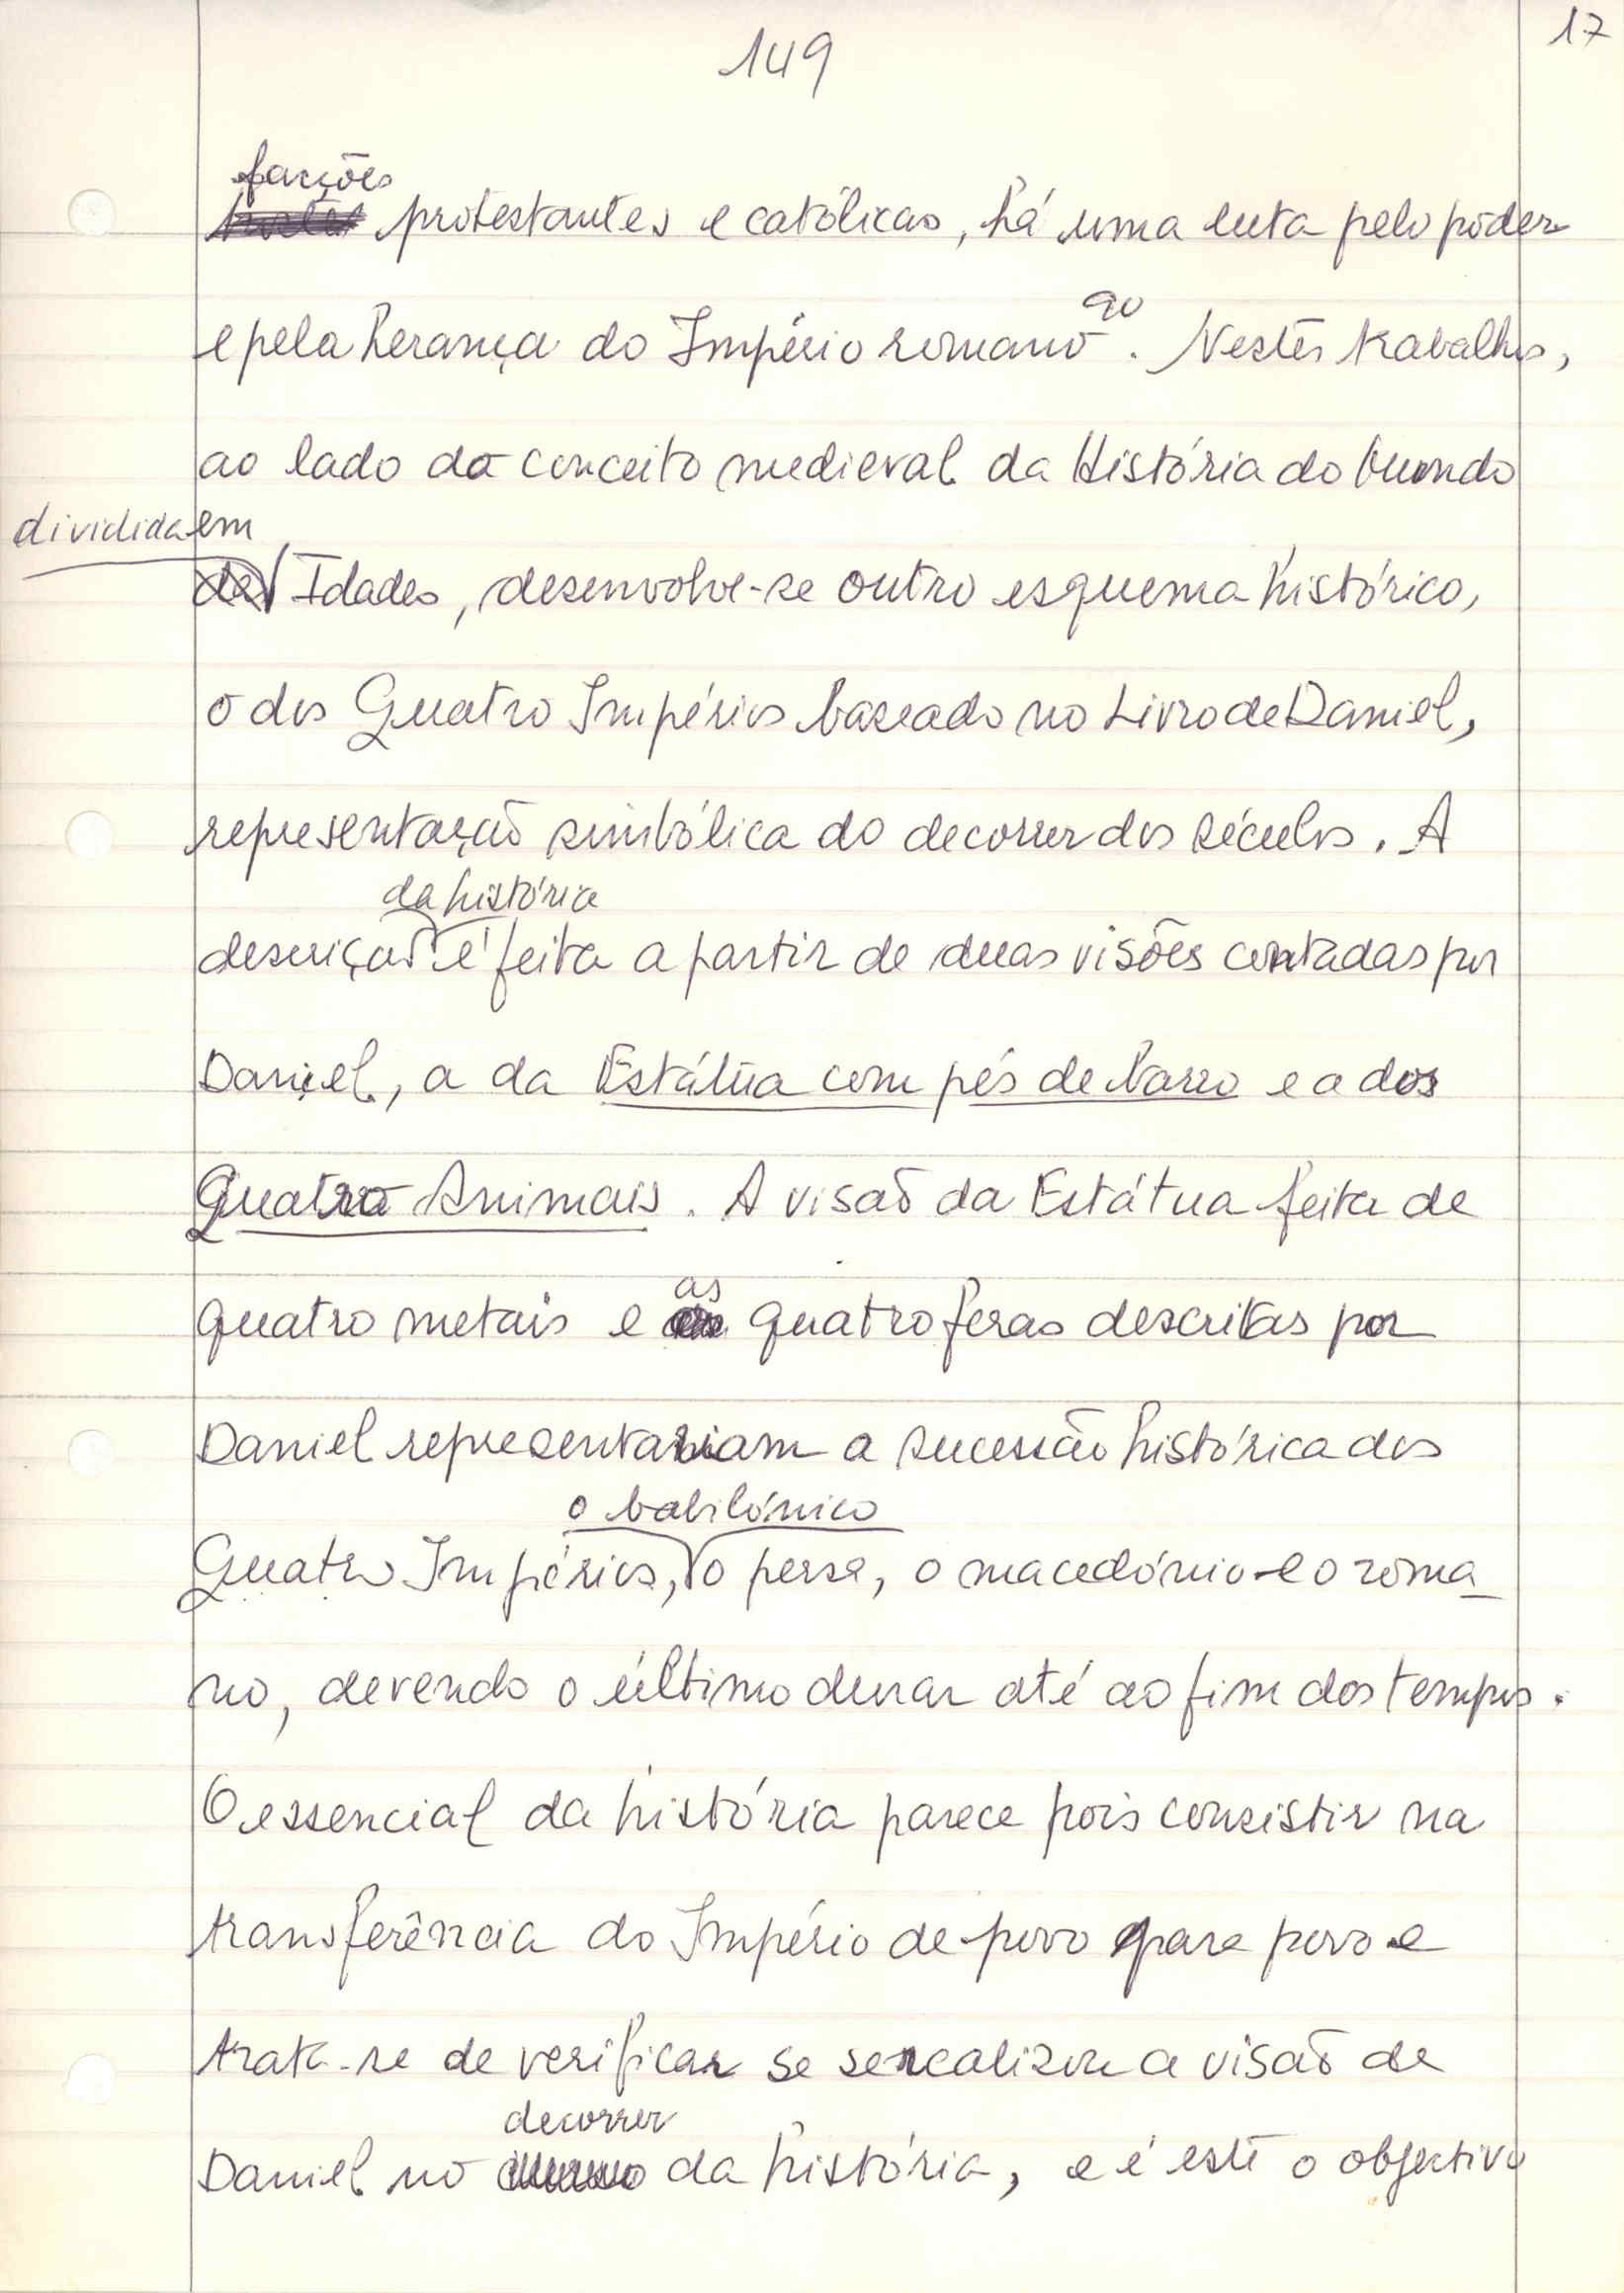 149
17
facções
protestantes e católicas, há uma luta pelo poder
e pela herança do Império romano 90. Nestes trabalhos,
ao lado do conceito medieval da História do Mundo
dividida em
Idades, desenvolve-se outro esquema histórico,
o dos Quatro Impérios baseado no Livro de Daniel,
representação simbólica do decorrer dos séculos. A
da história
descrição é feita a partir de duas visões contadas por
Daniel, a da Estátua com pés de barro e a dos
Quatro Animais. A visão da Estátua feita de
as
quatro metais e quatro feras descritas por
Daniel representariam a sucessão histórica dos
o babilónico
Quatro Impérios, o persa, o macedónio e o roma
no, devendo o último durar até ao fim dos tempos.
O essencial da história parece pois consistir na
transferência do Império de povo para povo e
trata-se de verificar se se realizou a visão de
decorrer
Daniel no da história, e é este o objectivo